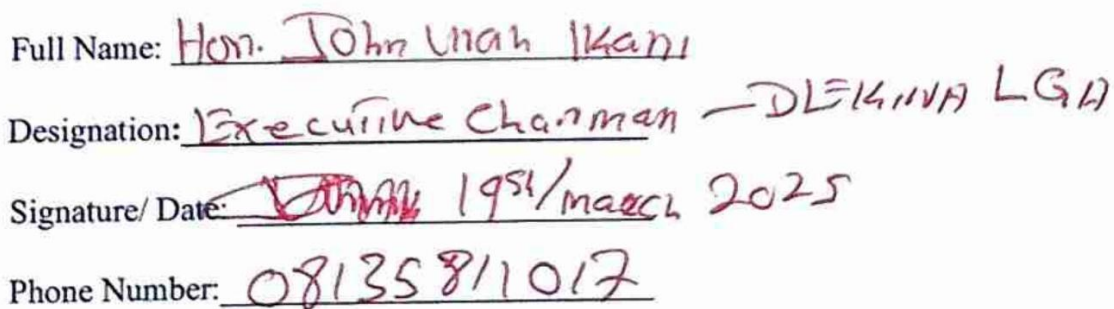 Full Name: Hon. John Unah Ikani
Designation: Executive Chairman – DEKINA LGA
Signature/ Date: 19st/march 2025
Phone Number: 08135811017